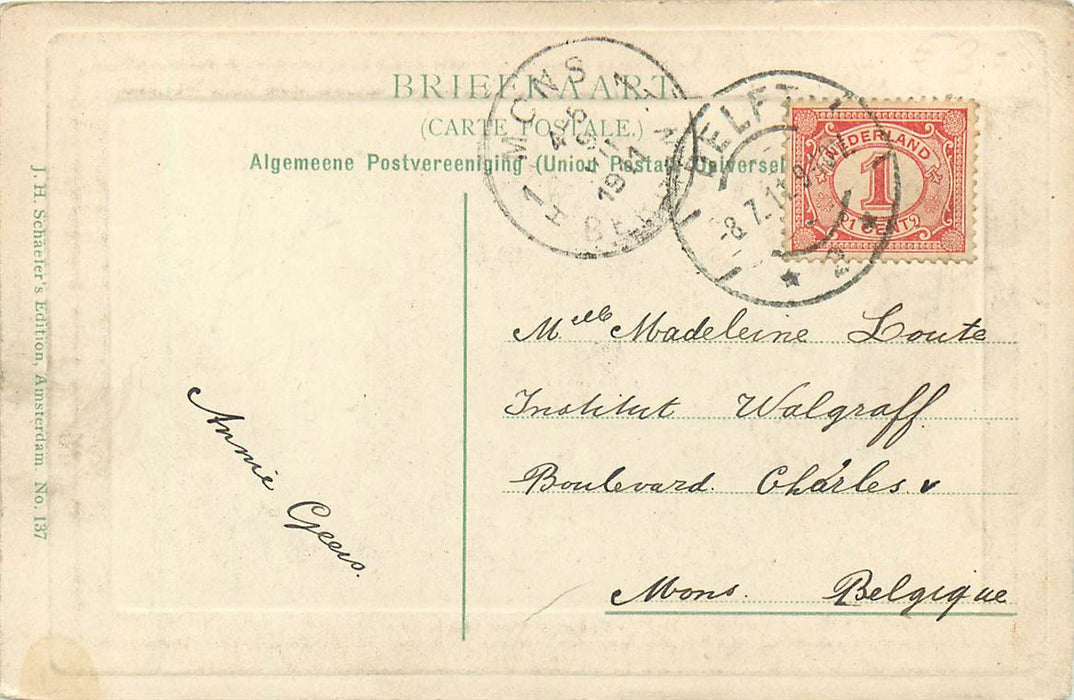 BRIEFKAART
(CARTE POSTALE.)
Algemeene Postvereeniging (Union Postale Universelle
MONS
1911
DELFT
8.7.11
NEDERLAND
1
1 CENT
Mlle Madeleine Loute
Institut Walgraff
Boulevard Charles v
Mons. Belgique
Annie Geers.
J. H. Schaefer's Edition, Amsterdam. No. 137